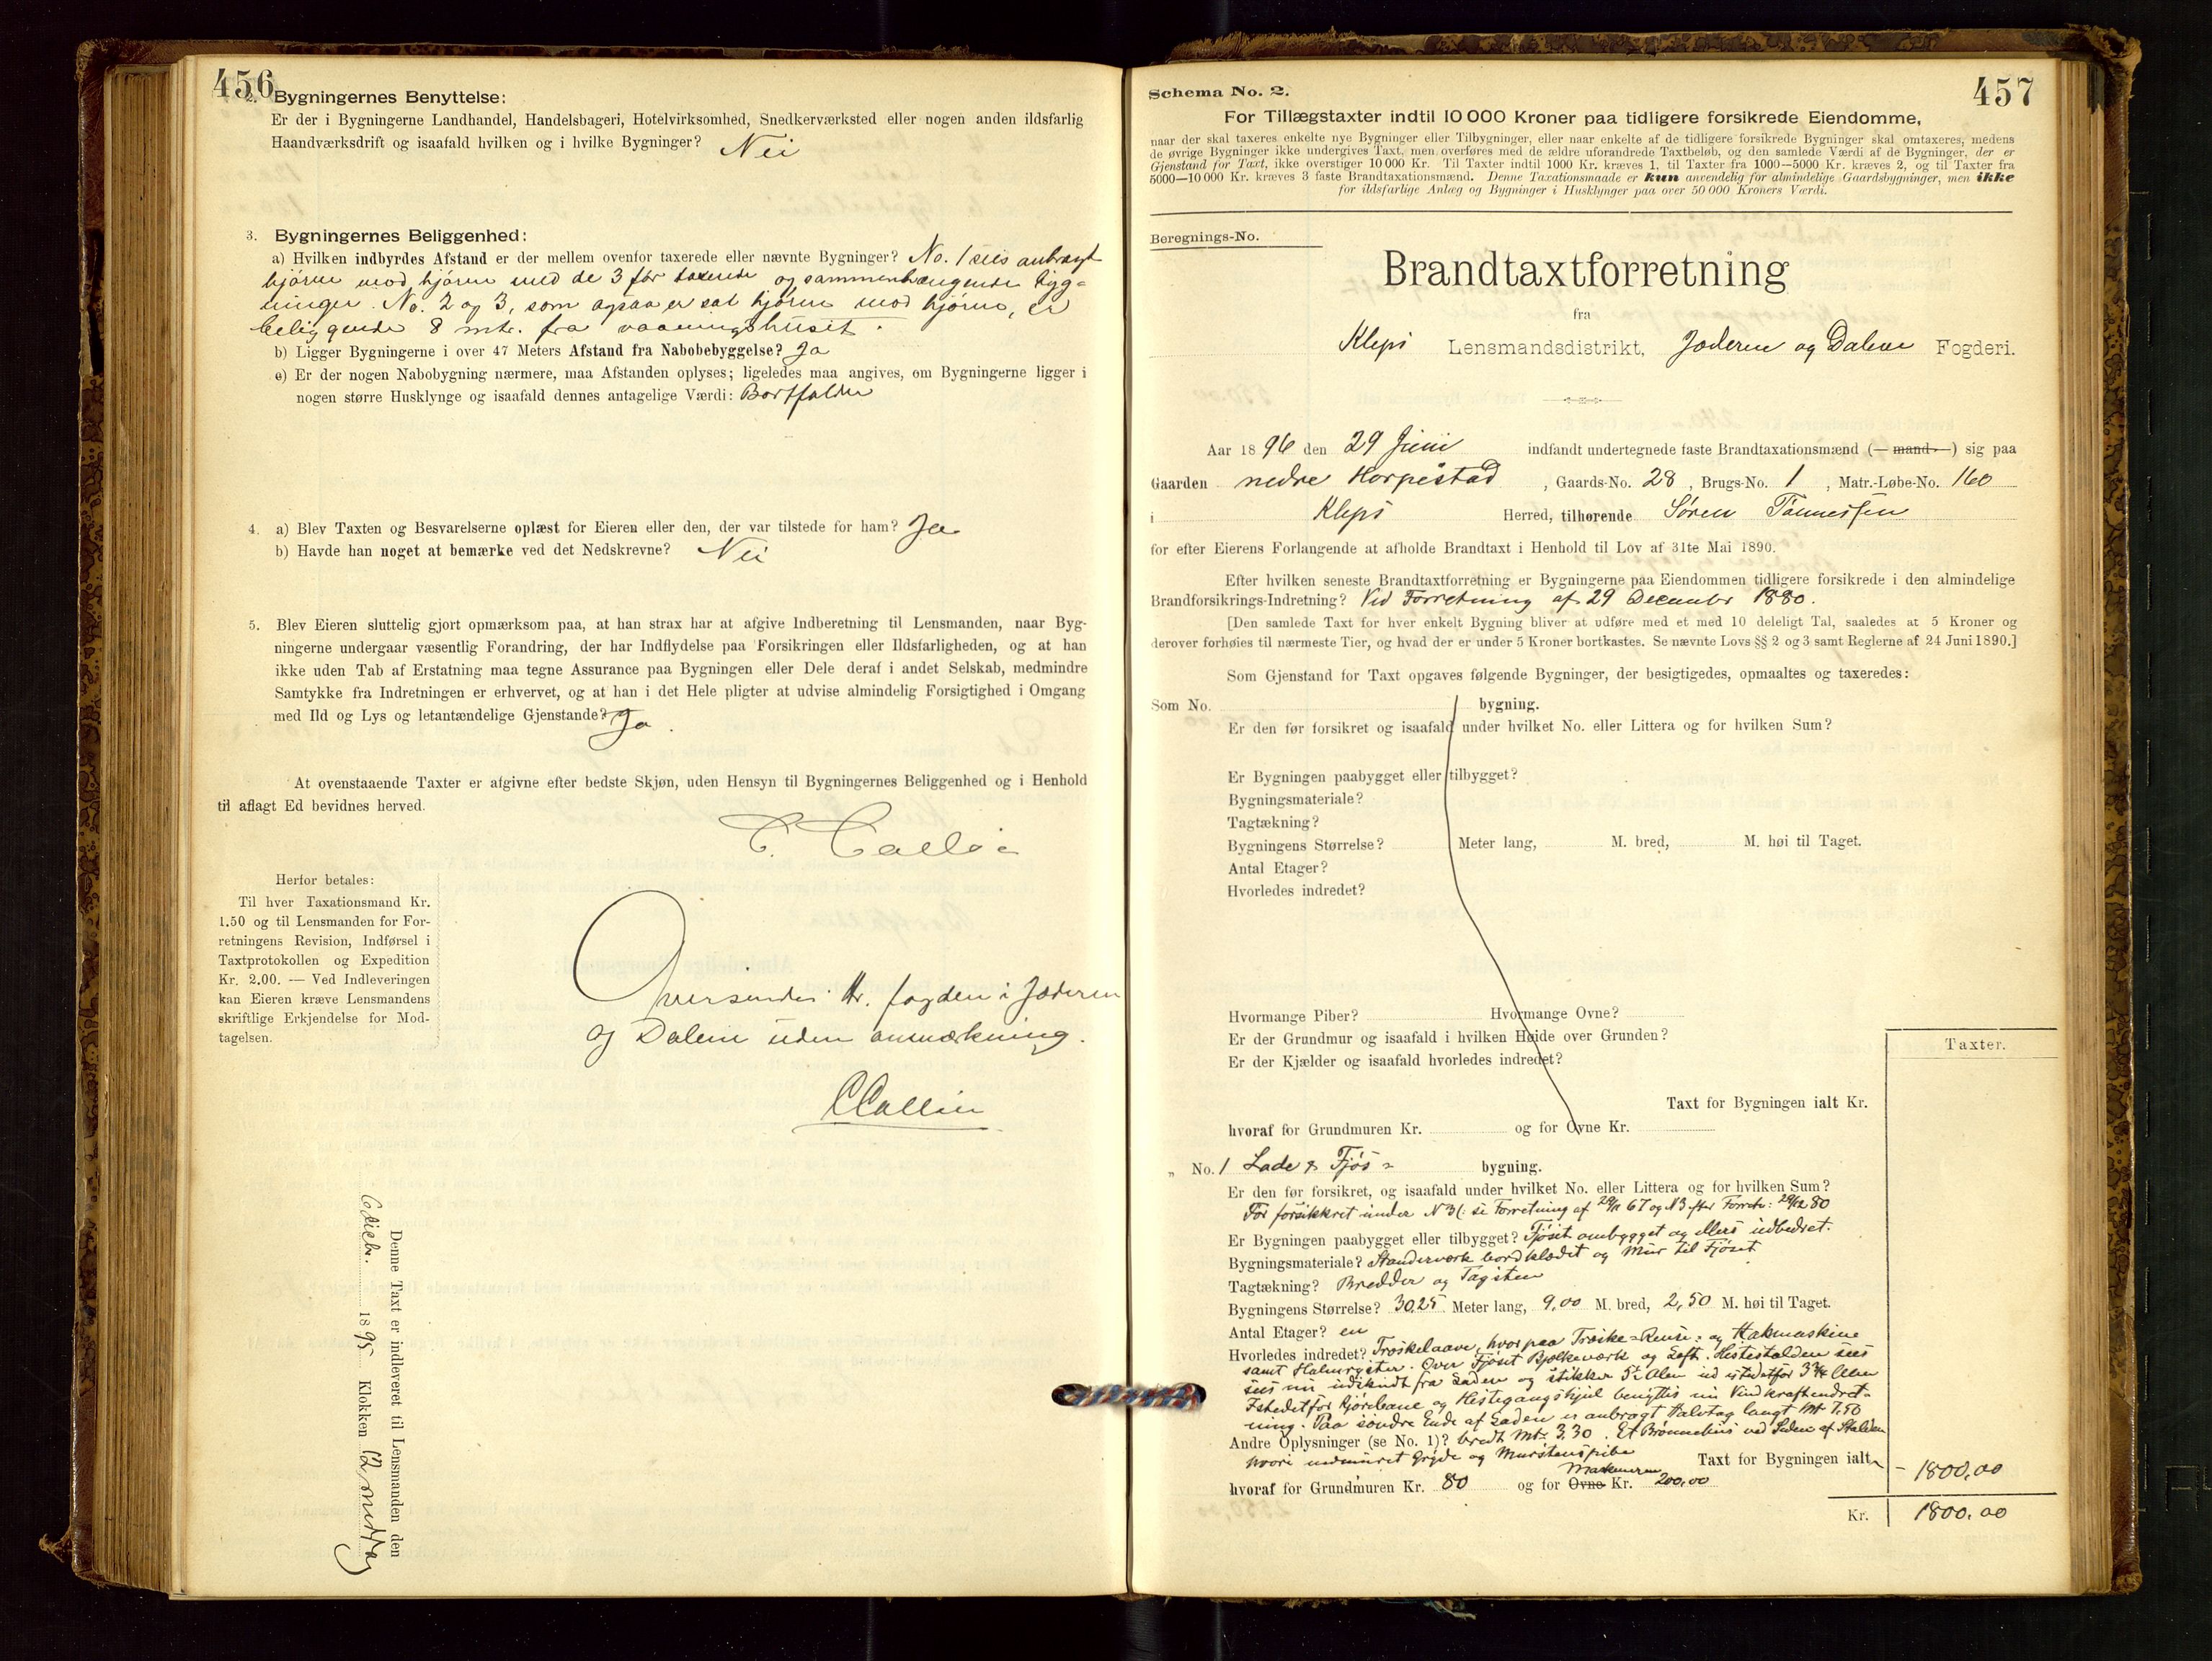 456
2. Bygningernes Benyttelse:
Er der i Bygningerne Landhandel, Handelsbageri, Hotelvirksomhed, Snedkerværksted eller nogen anden ildsfarlig
Haandværksdrift og isaafald hvilken og i hvilke Bygninger? Nei
3. Bygningernes Beliggenhed:
a) Hvilken indbyrdes Afstand er der mellem ovenfor taxerede eller nævnte Bygninger? No. 1 sees anbragt
hjørne mod hjørne med de 3 før taxerede og sammenhængende byg-
ninger. No. 2 og 3, som ogsaa er sat hjørne mod hjørne, er
beliggende 8 mtr. fra vaaningshuset.
b) Ligger Bygningerne i over 47 Meters Afstand fra Nabobebyggelse? Ja
c) Er der nogen Nabobygning nærmere, maa Afstanden oplyses; ligeledes maa angives, om Bygningerne ligger i
nogen større Husklynge og isaafald dennes antagelige Værdi: Bortfalder
4. a) Blev Taxten og Besvarelserne oplæst for Eieren eller den, der var tilstede for ham? Ja
b) Havde han noget at bemærke ved det Nedskrevne? Nei
5. Blev Eieren sluttelig gjort opmærksom paa, at han strax har at afgive Indberetning til Lensmanden, naar Byg-
ningerne undergaar væsentlig Forandring, der har Indflydelse paa Forsikringen eller Ildsfarligheden, og at han
ikke uden Tab af Erstatning maa tegne Assurance paa Bygningen eller Dele deraf i andet Selskab, medmindre
Samtykke fra Indretningen er erhvervet, og at han i det Hele pligter at udvise almindelig Forsigtighed i Omgang
med Ild og Lys og letantændelige Gjenstande? Ja.
At ovenstaaende Taxter er afgivne efter bedste Skjøn, uden Hensyn til Bygningernes Beliggenhed og i Henhold
til aflagt Ed bevidnes herved.
Herfor betales:
Til hver Taxationsmand Kr.
1.50 og til Lensmanden for For-
retningens Revision, Indførsel i
Taxtprotokollen og Expedition
Kr. 2.00. — Ved Indleveringen
kan Eieren kræve Lensmandens
skriftlige Erkjendelse for Mod-
tagelsen.
Oversendes Hr. fogden i Jæderen
og Dalene uden anmærkning.
Denne Taxt er indleveret til Lensmanden den
1895 Klokken 12 middag
457
Schema No. 2.
For Tillægstaxter indtil 10 000 Kroner paa tidligere forsikrede Eiendomme,
naar der skal taxeres enkelte nye Bygninger eller Tilbygninger, eller naar enkelte af de tidligere forsikrede Bygninger skal omtaxeres, medens
de øvrige Bygninger ikke undergives Taxt, men overføres med de ældre uforandrede Taxtbeløb, og den samlede Værdi af de Bygninger, der er
Gjenstand for Taxt, ikke overstiger 10 000 Kr. Til Taxter indtil 1000 Kr. kræves 1, til Taxter fra 1000—5000 Kr. kræves 2, og til Taxter fra
5000—10 000 Kr. kræves 3 faste Brandtaxationsmænd. Denne Taxationsmaade er kun anvendelig for almindelige Gaardsbygninger, men ikke
for ildsfarlige Anlæg og Bygninger i Husklynger paa over 50 000 Kroners Værdi.
Beregnings-No.
Brandtaxtforretning
fra
Klepps Lensmandsdistrikt, Jæderen og Dalene Fogderi.
Aar 1896 den 29 Juni indfandt undertegnede faste Brandtaxationsmænd (— mand —) sig paa
Gaarden nedre Horpestad, Gaards-No. 28, Brugs-No. 1, Matr.-Løbe-No. 160
i Klepps Herred, tilhørende Søren Tønnessen
for efter Eierens Forlangende at afholde Brandtaxt i Henhold til Lov af 31te Mai 1890.
Efter hvilken seneste Brandtaxtforretning er Bygningerne paa Eiendommen tidligere forsikrede i den almindelige
Brandforsikrings-Indretning? Ved Forretning af 29 December 1880.
[Den samlede Taxt for hver enkelt Bygning bliver at udføre med et med 10 deleligt Tal, saaledes at 5 Kroner og
derover forhøies til nærmeste Tier, og hvad der er under 5 Kroner bortkastes. Se nævnte Lovs §§ 2 og 3 samt Reglerne af 24 Juni 1890.]
Som Gjenstand for Taxt opgaves følgende Bygninger, der besigtigedes, opmaaltes og taxeredes:
Som No. bygning.
Er den før forsikret og isaafald under hvilket No. eller Littera og for hvilken Sum?
Er Bygningen paabygget eller tilbygget?
Bygningsmateriale?
Tagtækning?
Bygningens Størrelse? Meter lang, M. bred, M. høi til Taget.
Antal Etager?
Hvorledes indredet?
Hvormange Piber? Hvormange Ovne?
Er der Grundmur og isaafald i hvilken Høide over Grunden?
Er der Kjælder og isaafald hvorledes indredet?
Taxter.
Taxt for Bygningen ialt Kr.
hvoraf for Grundmuren Kr. og for Ovne Kr.
„ No. 1 Lade & Fjøs = bygning.
Er den før forsikret, og isaafald under hvilket No. eller Littera og for hvilken Sum?
Før forsikkret under N 3 (: se Forretning af 67 og N 3 efter Forretn: 29/12 80
Er Bygningen paabygget eller tilbygget? Fjøset ombygget og ellers udbedret.
Bygningsmateriale? Standerværk bordklædet og Mur til Fjøset
Tagtækning? Bredder og Tagsten
Bygningens Størrelse? 30,25 Meter lang, 9,00 M. bred, 2,50 M. høi til Taget.
Antal Etager? en
Hvorledes indredet? Træskelaave, hvorpaa Træske = Rense = og Hakmaskine
samt Halmryster. Over Fjøset Bjelkeværk og Loft. Hestestalden sees
sees nu udskudt fra Laden og stikker 5½ Alen ud istedetfor 3¾ Alen
Istedetfor Kjørebane og Hestegangshjul benyttes nu Vindkraftindret-
ning. Paa søndre Ende af Laden er anbragt Halvtag langt Mt 7,50
Andre Oplysninger (se No. 1)? bredt Mtr. 3.30. Et Brønnehus ved Siden af Stalden
hvori indmuret Gryde og Murstenspibe Taxt for Bygningen ialt 1800,00
hvoraf for Grundmuren Kr. 80 og for Ovne Maskinerne Kr. 200,00
Kr. 1800,00